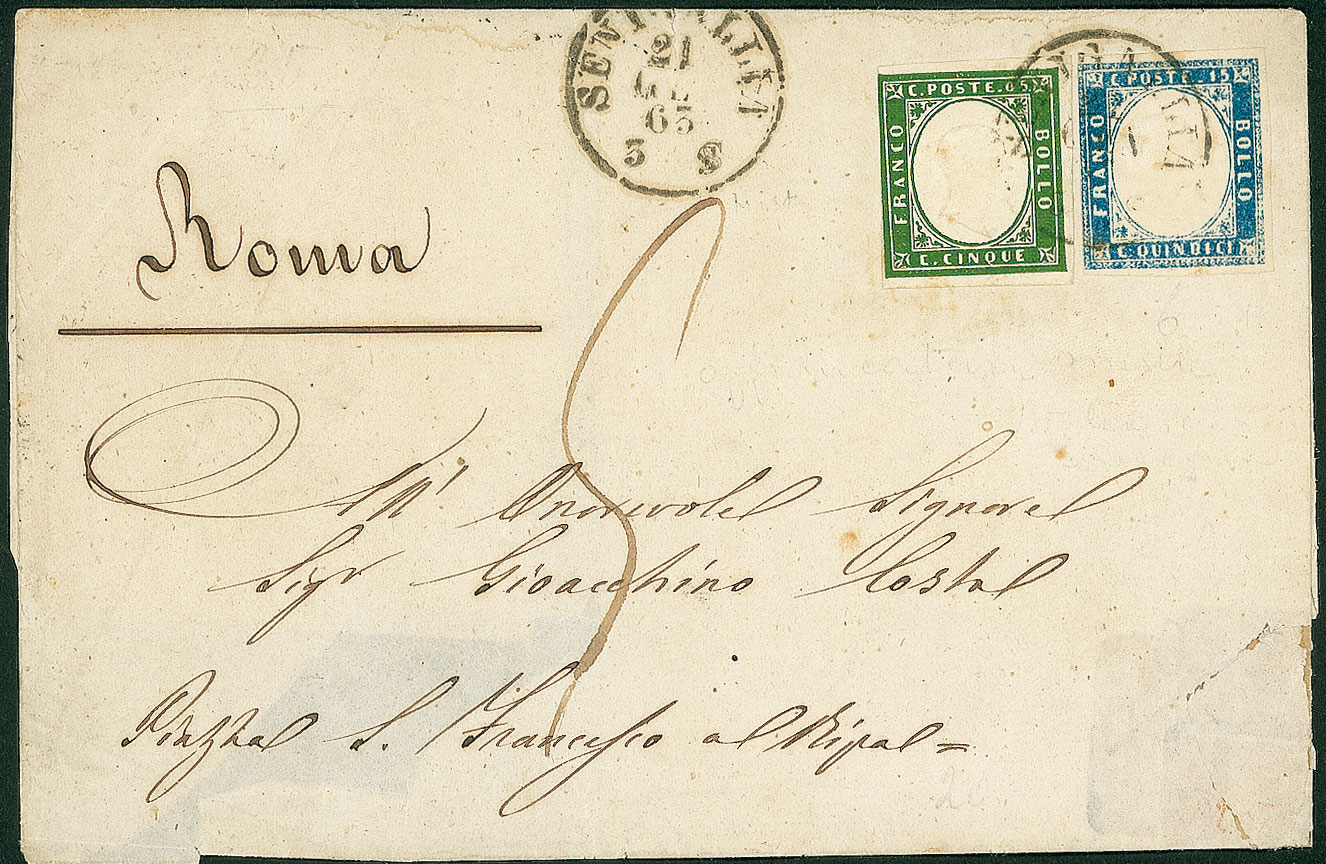 SENIGALLIA
21
GE
63
3 S
C. POSTE. 05.
FRANCO
BOLLO
C. CINQUE
C. POSTE 15
FRANCO
BOLLO
C. QUINDICI
Roma
5
All' Onorevole Signore
Sigr Gioacchino Costa
Piazza S. Francesco a Ripa =